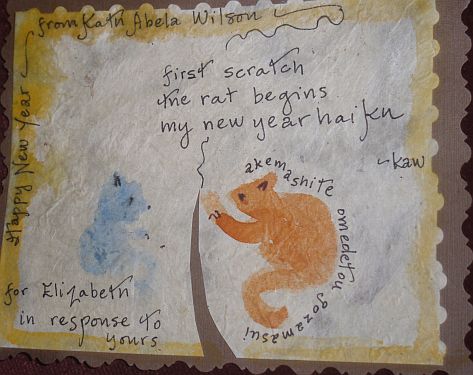 from Kath Abela Wilson
Happy New Year
first scratch
the rat begins
my new year haiku
~kaw
akemashite
omedetou gozamasui
for Elizabeth
in response to
yours